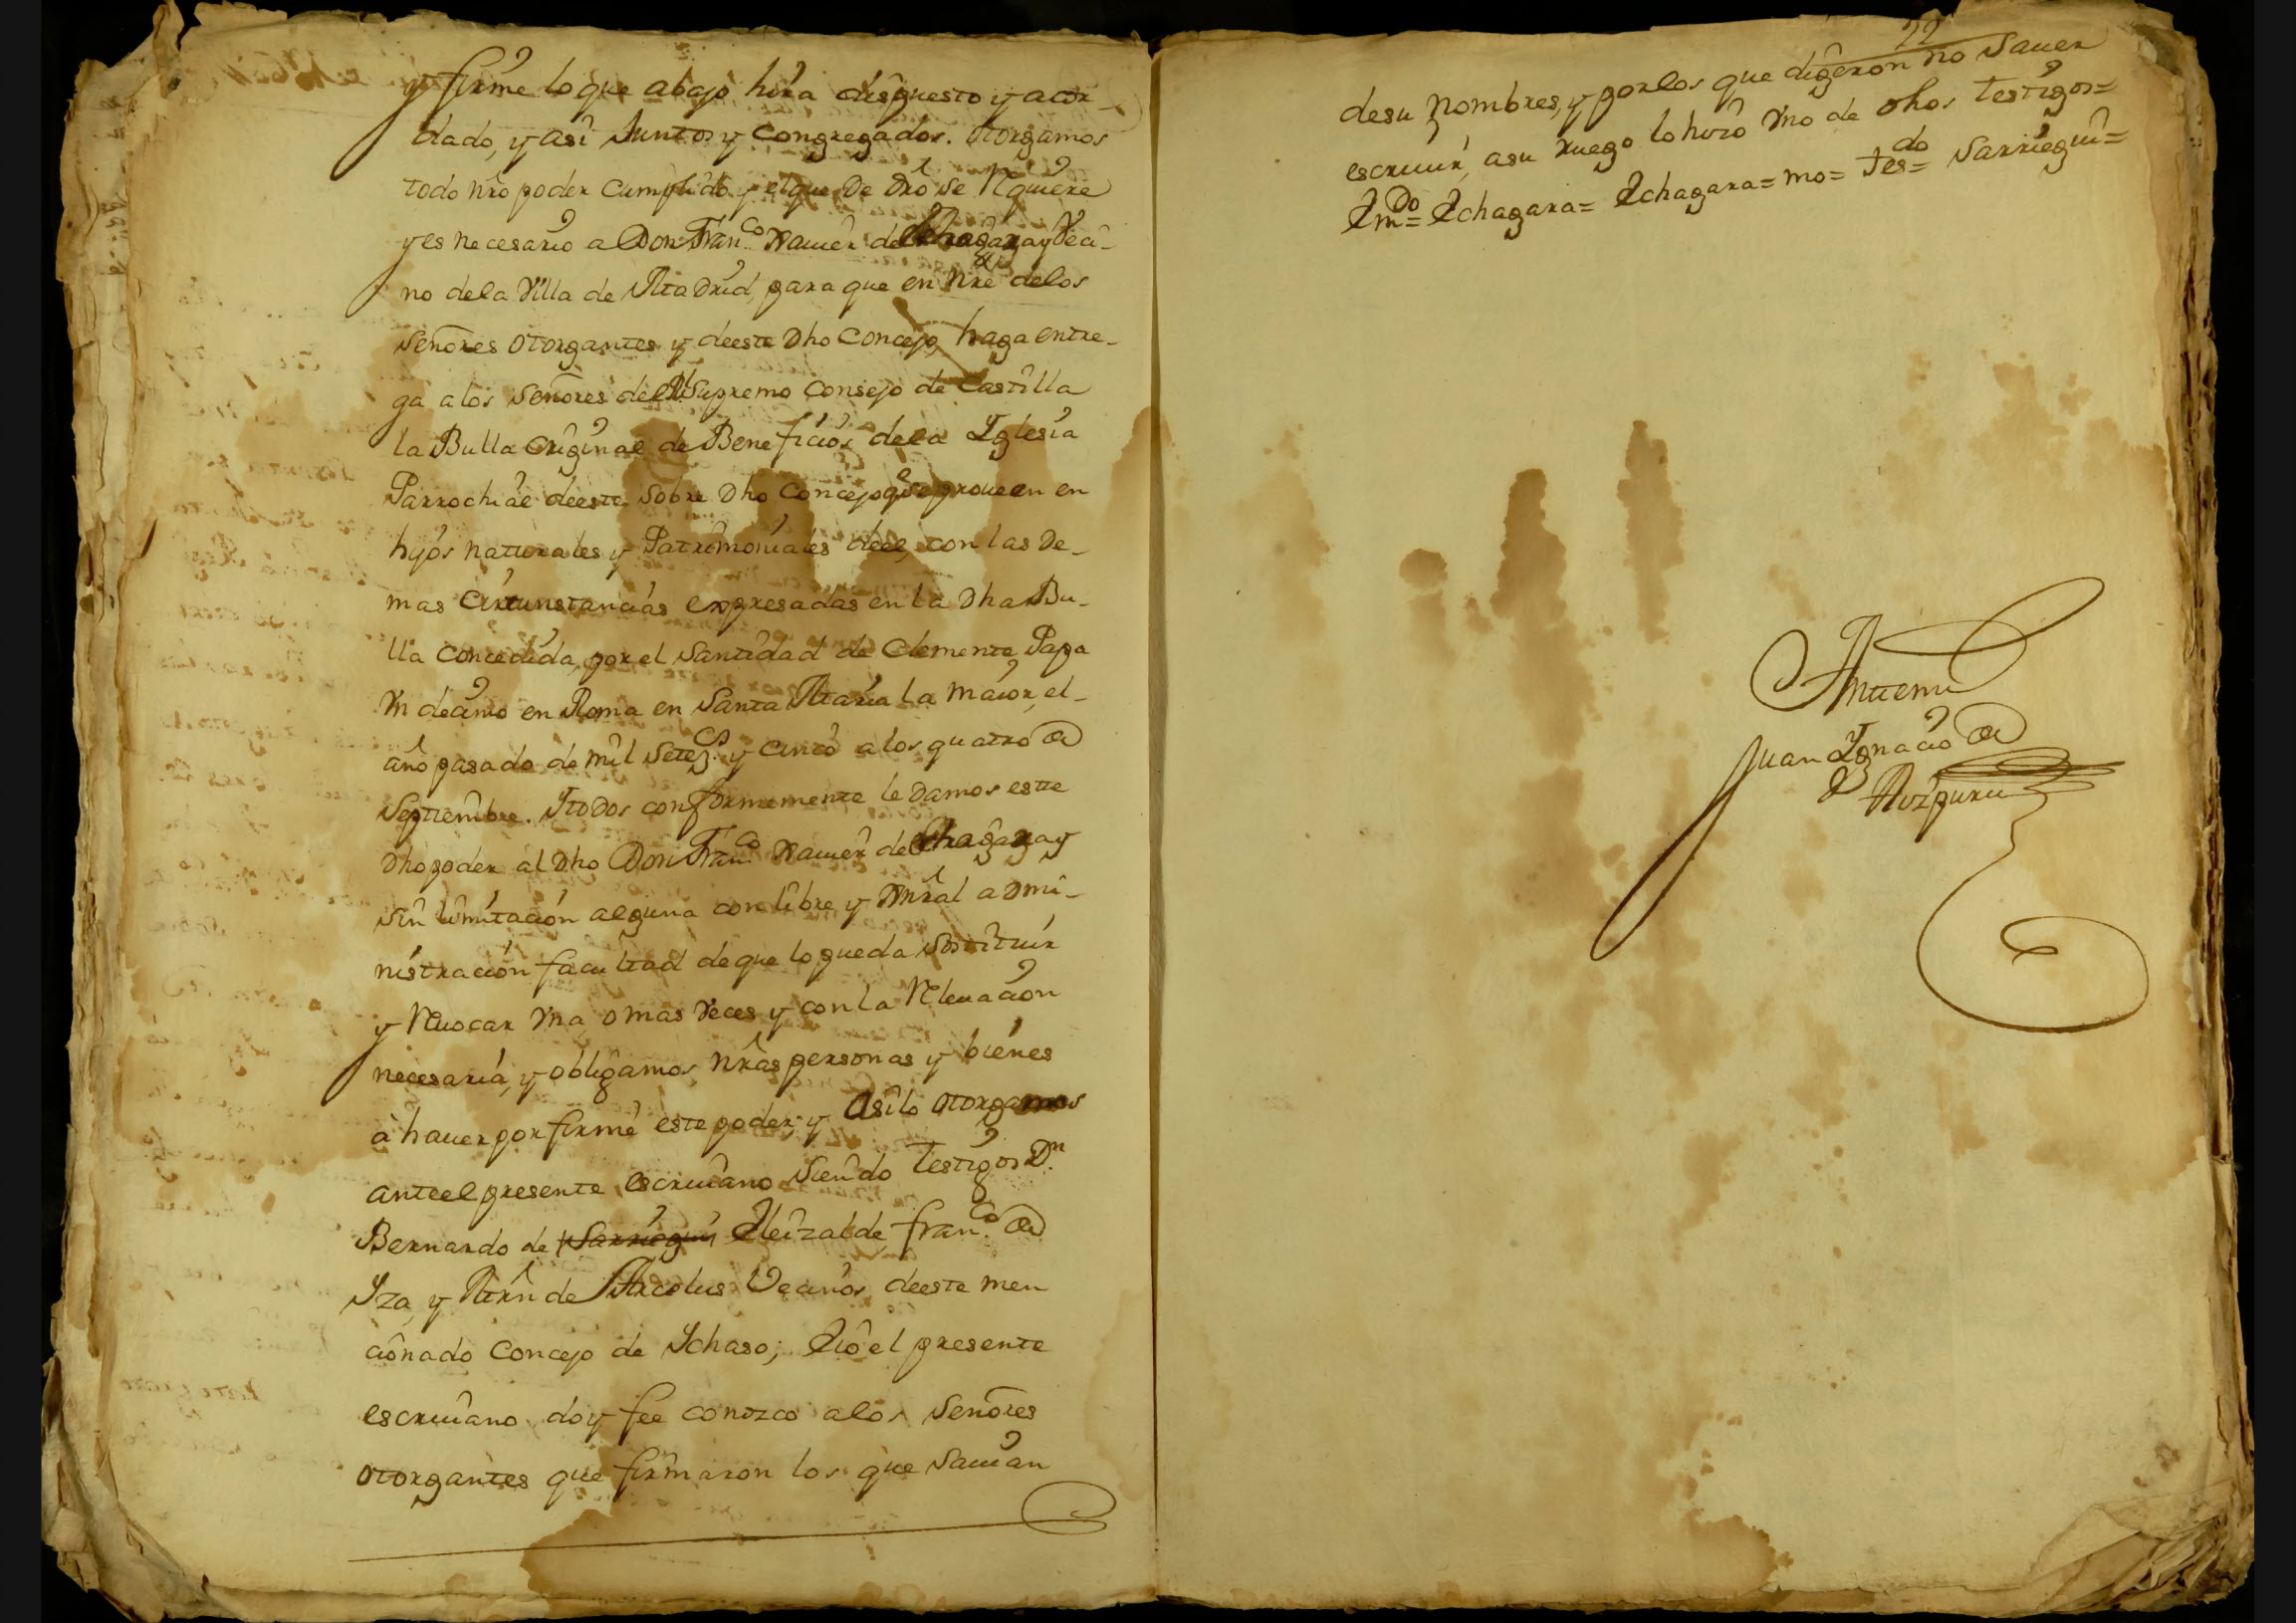 y firme lo que abajo hira dispuesto y acor
dado, y asi Juntos y Congregados. otorgamos
todo nro poder Cumplido y el que De Dro se Rquiere
y es necesario a Don Franco Xauier de Echagaray Veci-
no de la Villa de Madrid, para que en nre delos
Señores otorgantes y deeste Dho Concejo, haga entre-
ga a los Señores del Rl Supremo Consejo de Castilla
la Bulla original de Beneficios dela Yglesia
Parrochial deeste sobre Dho Concejo qe se proueen en
hijos naturales y Patrimoniales deel, con las De-
mas Circunstancias expresadas en la Dha Bu-
lla Concedida, por el Santidad de Clemente Papa
Vndecimo en Roma en Santa Maria la maior, el-
año pasado de mil setezos y Cinco a los quatro de
Septiembre. Y todos conformemente le Damos este
Dho poder al Dho Don Franco Xauier de Echagaray
sin limitacion alguna con libre y Vnral admi-
nistracion facultad de que lo pueda sostituir
y Reuocar Vna, o mas Veces y con la Releuacion
necesaria, y obligamos, nras personas y bienes
à hauer por firme este poder, y Asilo otorgamos
ante el presente escriuano siendo testigos Dn
Bernardo de Sarriegui Eleizalde, Franco de
Yza, y Mrn de Arcelus Vecinos deeste men
cionado Concejo de Ychaso; E io el presente
escriuano doy fee conozco a los Señores
otorgantes que firmaron los que sauian
22
desu nombres, y por los que digeron no sauer
escriuir, asu ruego lo hizo Vno de dhos testigos=
Emdo= Echagara= Echagara= mo= tesdo= Sarriegui=
Antemi
Juan Ygnacio de
Aizpuru